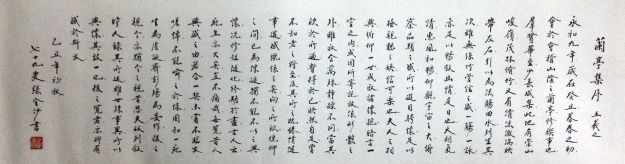 蘭亭集序 王羲之
永和九年歲在癸丑暮春之初
會於會稽山陰之蘭亭修禊事也
群賢畢至少長咸集此地有崇山
峻嶺茂林修竹又有清流激湍映
帶左右引以為流觴曲水列坐其
次雖無絲竹管弦之盛一觴一詠
亦足以暢敘幽情是日也天朗氣
清惠風和暢仰觀宇宙之大俯
察品類之盛所以遊目騁懷足以
極視聽之娛信可樂也夫人之相
與俯仰一世或取諸懷抱晤言一
室之內或因寄所託放浪形骸之
外雖趣舍萬殊靜躁不同當其
欣於所遇暫得於己快然自足曾
不知老之將至及其所之既倦情隨
事遷感慨係之矣向之所欣俛仰
之間已為陳迹猶不能不以之興
懷況修短隨化終期於盡古人云
死生亦大矣豈不痛哉每覽昔人
興感之由若合一契未嘗不臨文
嗟悼不能喻之於懷固知一死
生為虛誕齊彭殤為妄作後之
視今亦猶今之視昔悲夫故列敘
時人錄其所述雖世殊事異所以
興懷其致一也後之覽者亦將有
感於斯文
己丑年初秋
七十九叟張金書